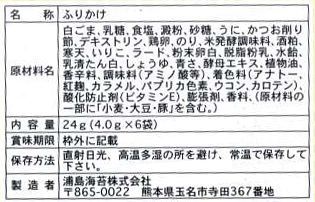 名 称 ふりかけ
原材料名 白ごま、乳糖、食塩、澱粉、砂糖、うに、かつお削り
節、デキストリン、鶏卵、のり、米発酵調味料、酒粕、
寒天、いりこ、ラード、粉末卵白、脱脂粉乳、水飴、
乳清たん白、しょうゆ、青さ、酵母エキス、植物油、
香辛料、調味料(アミノ酸等)、着色料(アナトー、
紅麹、カラメル、パプリカ色素、ウコン、カロテン)、
酸化防止剤(ビタミンE)、膨張剤、香料、(原材料の
一部に「小麦・大豆・豚」を含む。)
内 容 量 24g(4.0g×6袋)
賞味期限 枠外に記載
保存方法 直射日光、高温多湿の所を避け、常温で保存して
下さい。
製 造 者 浦島海苔株式会社
〒865-0022 熊本県玉名市寺田367番地